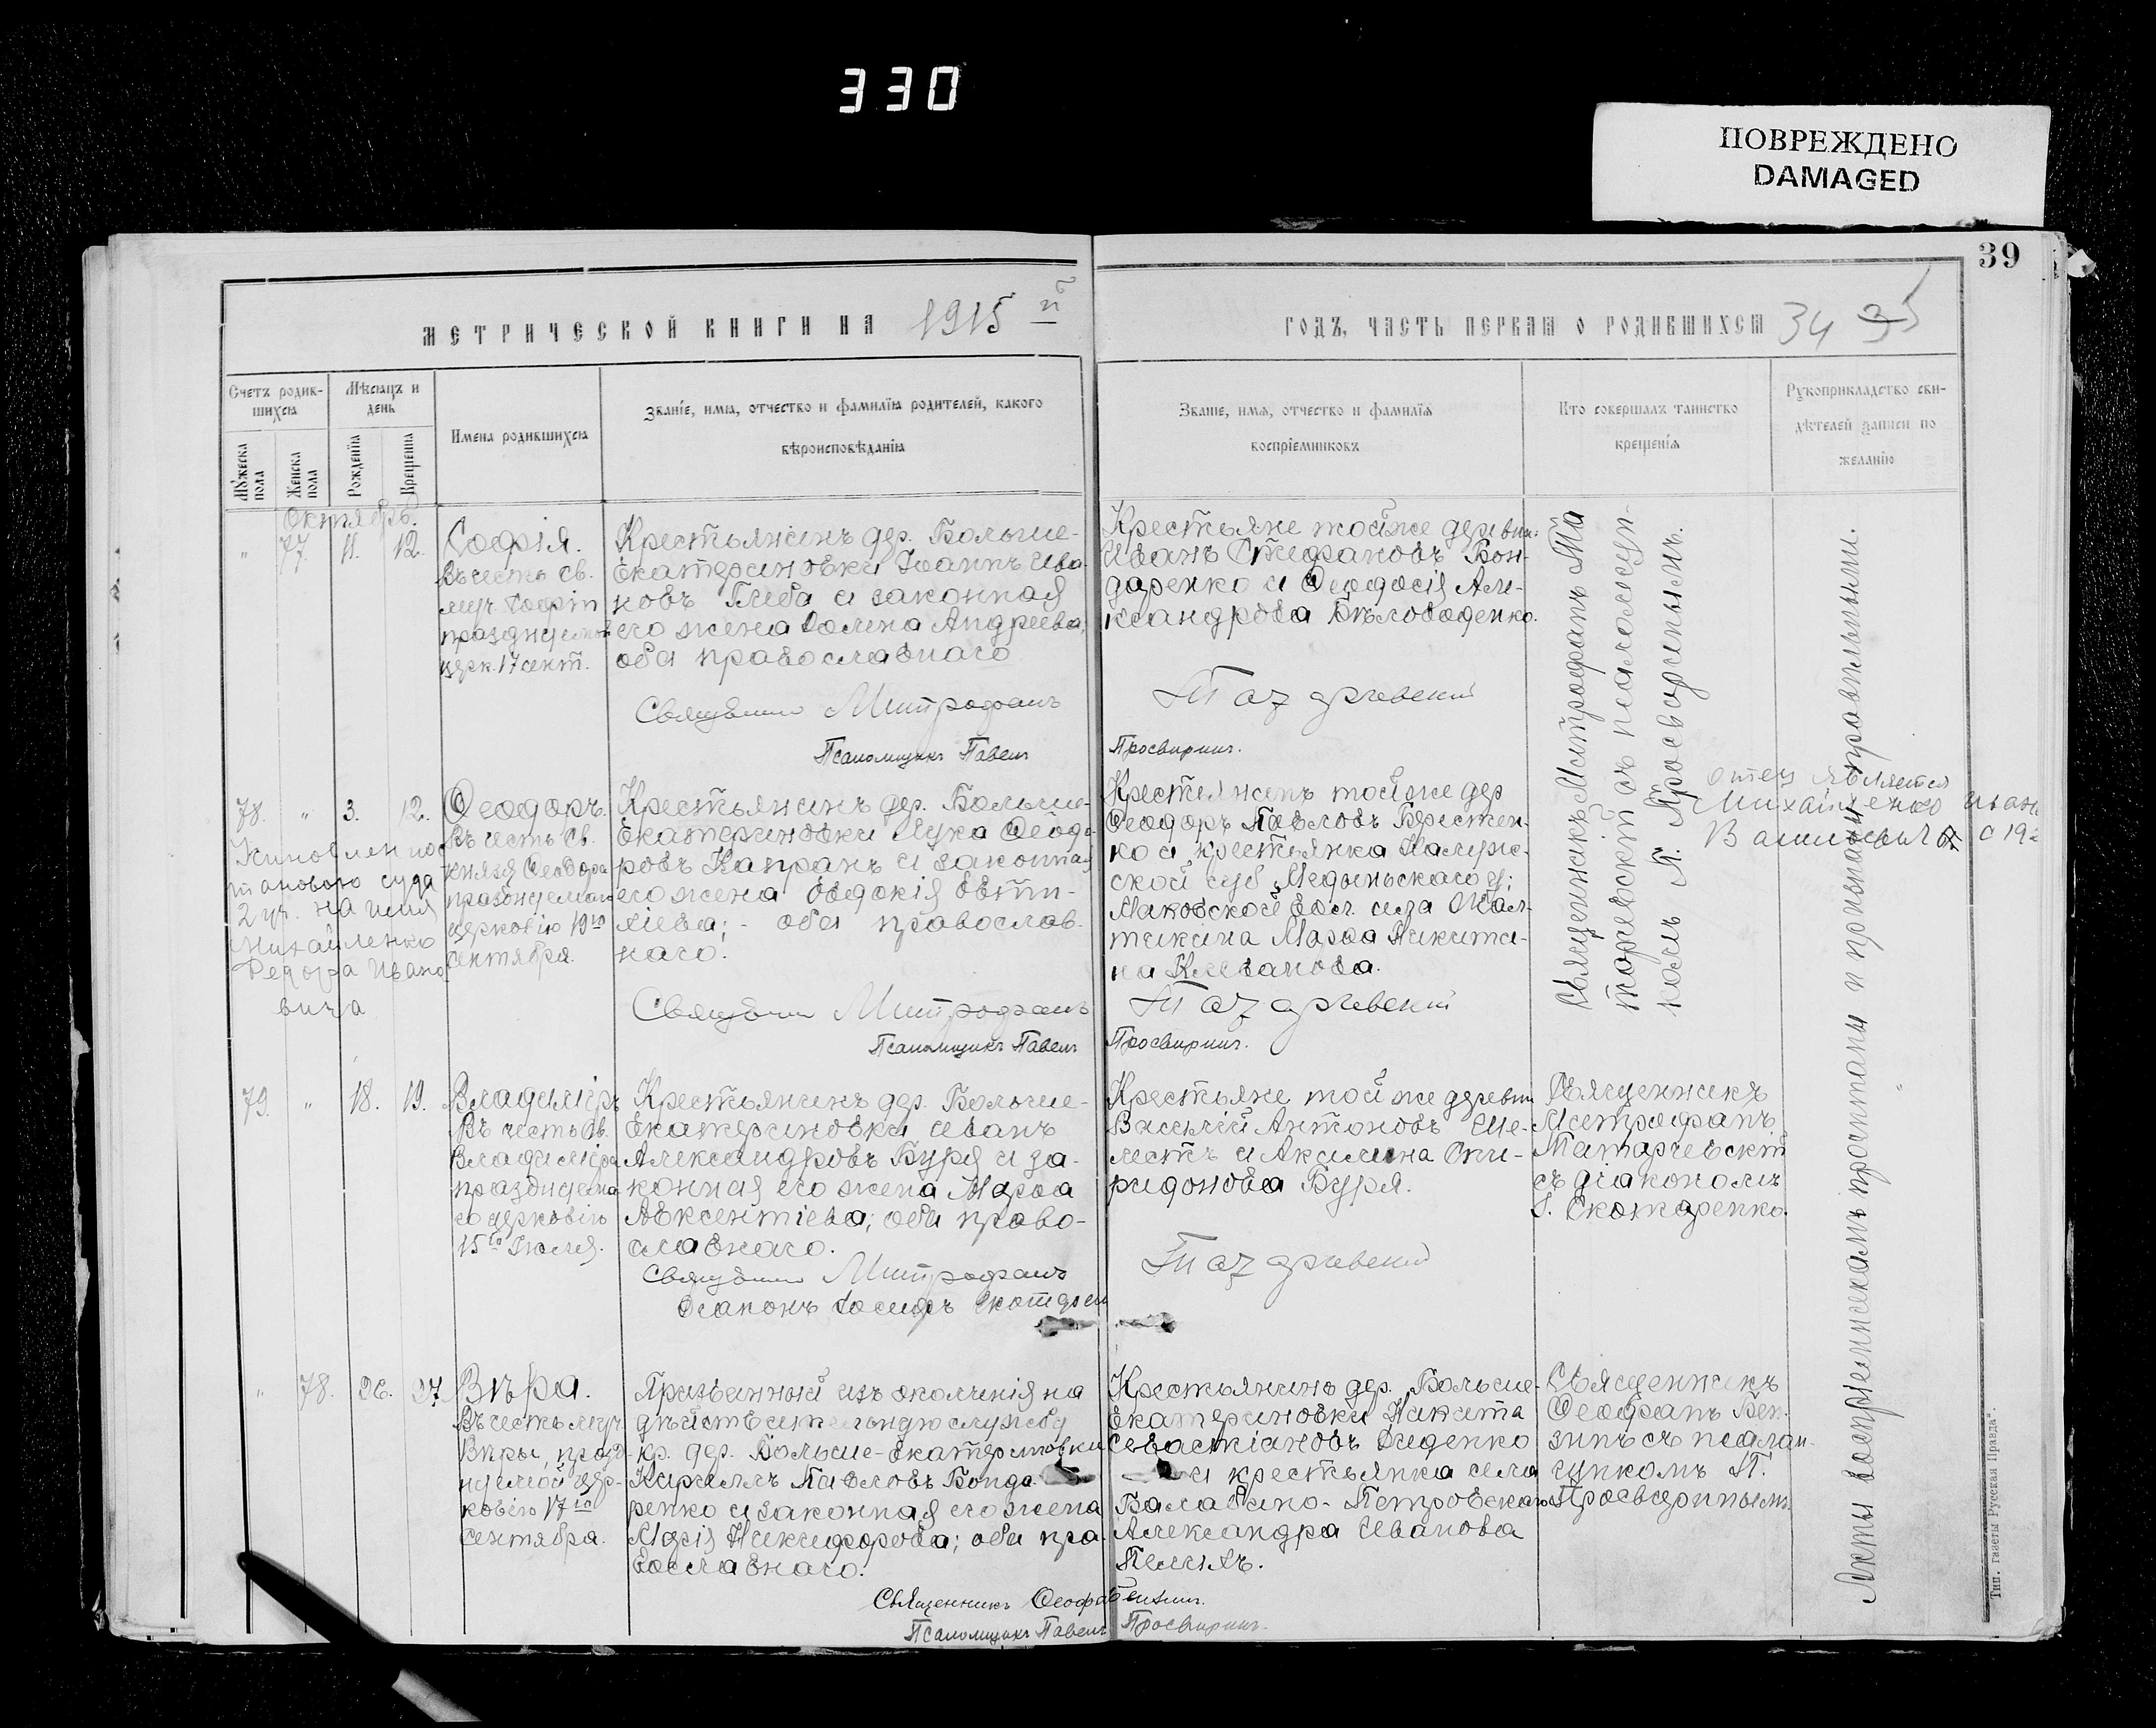 330
ПОВРЕЖДЕНО
DAMAGED
39
МЕТРИЧЕСКОЙ КНИГИ НА 1915 й
ГОДЪ, ЧАСТЬ ПЕРВАЯ О РОДИВШИХСЯ 34
Счетъ родив-
шихся
Мѣсяцъ и
день
Мужеска
пола
Женска
пола
Рожденія
Крещенія
Имена родившихся
Званіе, имя, отчество и фамилія родителей, какого
вѣроисповѣданія
Званіе, имя, отчество и фамилія
воспріемниковъ
Кто совершалъ таинство
крещенія
Рукоприкладство сви-
дѣтелей записи по
желанію
Октябрь.
" 77. 11. 12.
Софія.
Въ честь св.
муч. Софіи
празднуемой
церк. 17 сент.
Крестьянинъ дер. Больше-
Екатериновки Іоаннъ Ива-
новъ Глеба и законная
его жена Андреева,
оба православнаго
Священник Митрофанъ
Псаломщикъ Павелъ
Крестьяне той же деревни:
Иванъ Стефановъ Бон-
даренко и Ѳеодосія Але-
ксандрова Бѣловоденко.
Татарчевский
Просвиринъ.
Священникъ Митрофанъ Та
тарчевскій съ псаломщи-
комъ П. Просвиринымъ.
78. " 3. 12.
Киновлен пос
танового суда
2 уч. на имя
Михайленко
Федора Ивано
вича
Ѳеодоръ.
Въ честь св.
князя Ѳеодора
празднуемаго
церковію 19го
сентября.
Крестьянинъ дер. Больше-
Екатериновки Лука Ѳеодо-
ровъ Капранъ и законная
его жена Евдокія Евти-
хіева; - оба православ-
наго.
Священник Митрофанъ
Псаломщикъ Павелъ
Крестьянинъ той же дер
Ѳеодоръ Павловъ Брестен-
ко и крестьянка Калуж-
ской губ Медыньскаго у;
Маковской вол. села
Марѳа Никити-
на Клеванова.
Татарчевский
Просвиринъ.
Отец является
Михайленко Иван
с 19
79. " 18. 19.
Владиміръ
Въ честь св.
Владиміра
празднуема
го церковію
15го Іюля.
Крестьянинъ дер. Больше-
Екатериновки Иванъ
Александровъ Буря и за-
конная его жена Марѳа
Авксентіева; оба право-
славнаго.
Священник Митрофанъ
Діаконъ Іосифъ Скотарен
Крестьяне той же деревни
Василій Антоновъ Ше-
лестъ и Акилина Спи-
ридонова Буря.
Татарчевский
Священникъ
Митрофанъ
Татарчевскій
съ діакономъ
І. Скотаренко.
" 78. 26. 27.
Вѣра.
Въ честь муч.
Вѣры, празд-
нуемой цер-
ковію 17го
сентября.
Призванный изъ ополченія на
дѣйствительную службу
кр. дер. Больше-Екатериновки
Кириллъ Павловъ Бонда-
ренко и законная его жена
Марія Никифорова; оба пра-
вославнаго.
Священникъ Ѳеофанъ Бензинъ.
Псаломщикъ Павелъ Просвиринъ.
Крестьянинъ дер. Больше-
Екатериновки Никита
Севастіановъ Диденко
и крестьянка села
Балабино-Петровскаго
Александра Иванова
Пелихъ.
Священникъ
Ѳеофанъ Бен-
зинъ съ псалом-
щикомъ П.
Просвиринымъ.
Акты воспріемникамъ прочитаны и признаны правильными.
Тип. газеты Русская Правда".